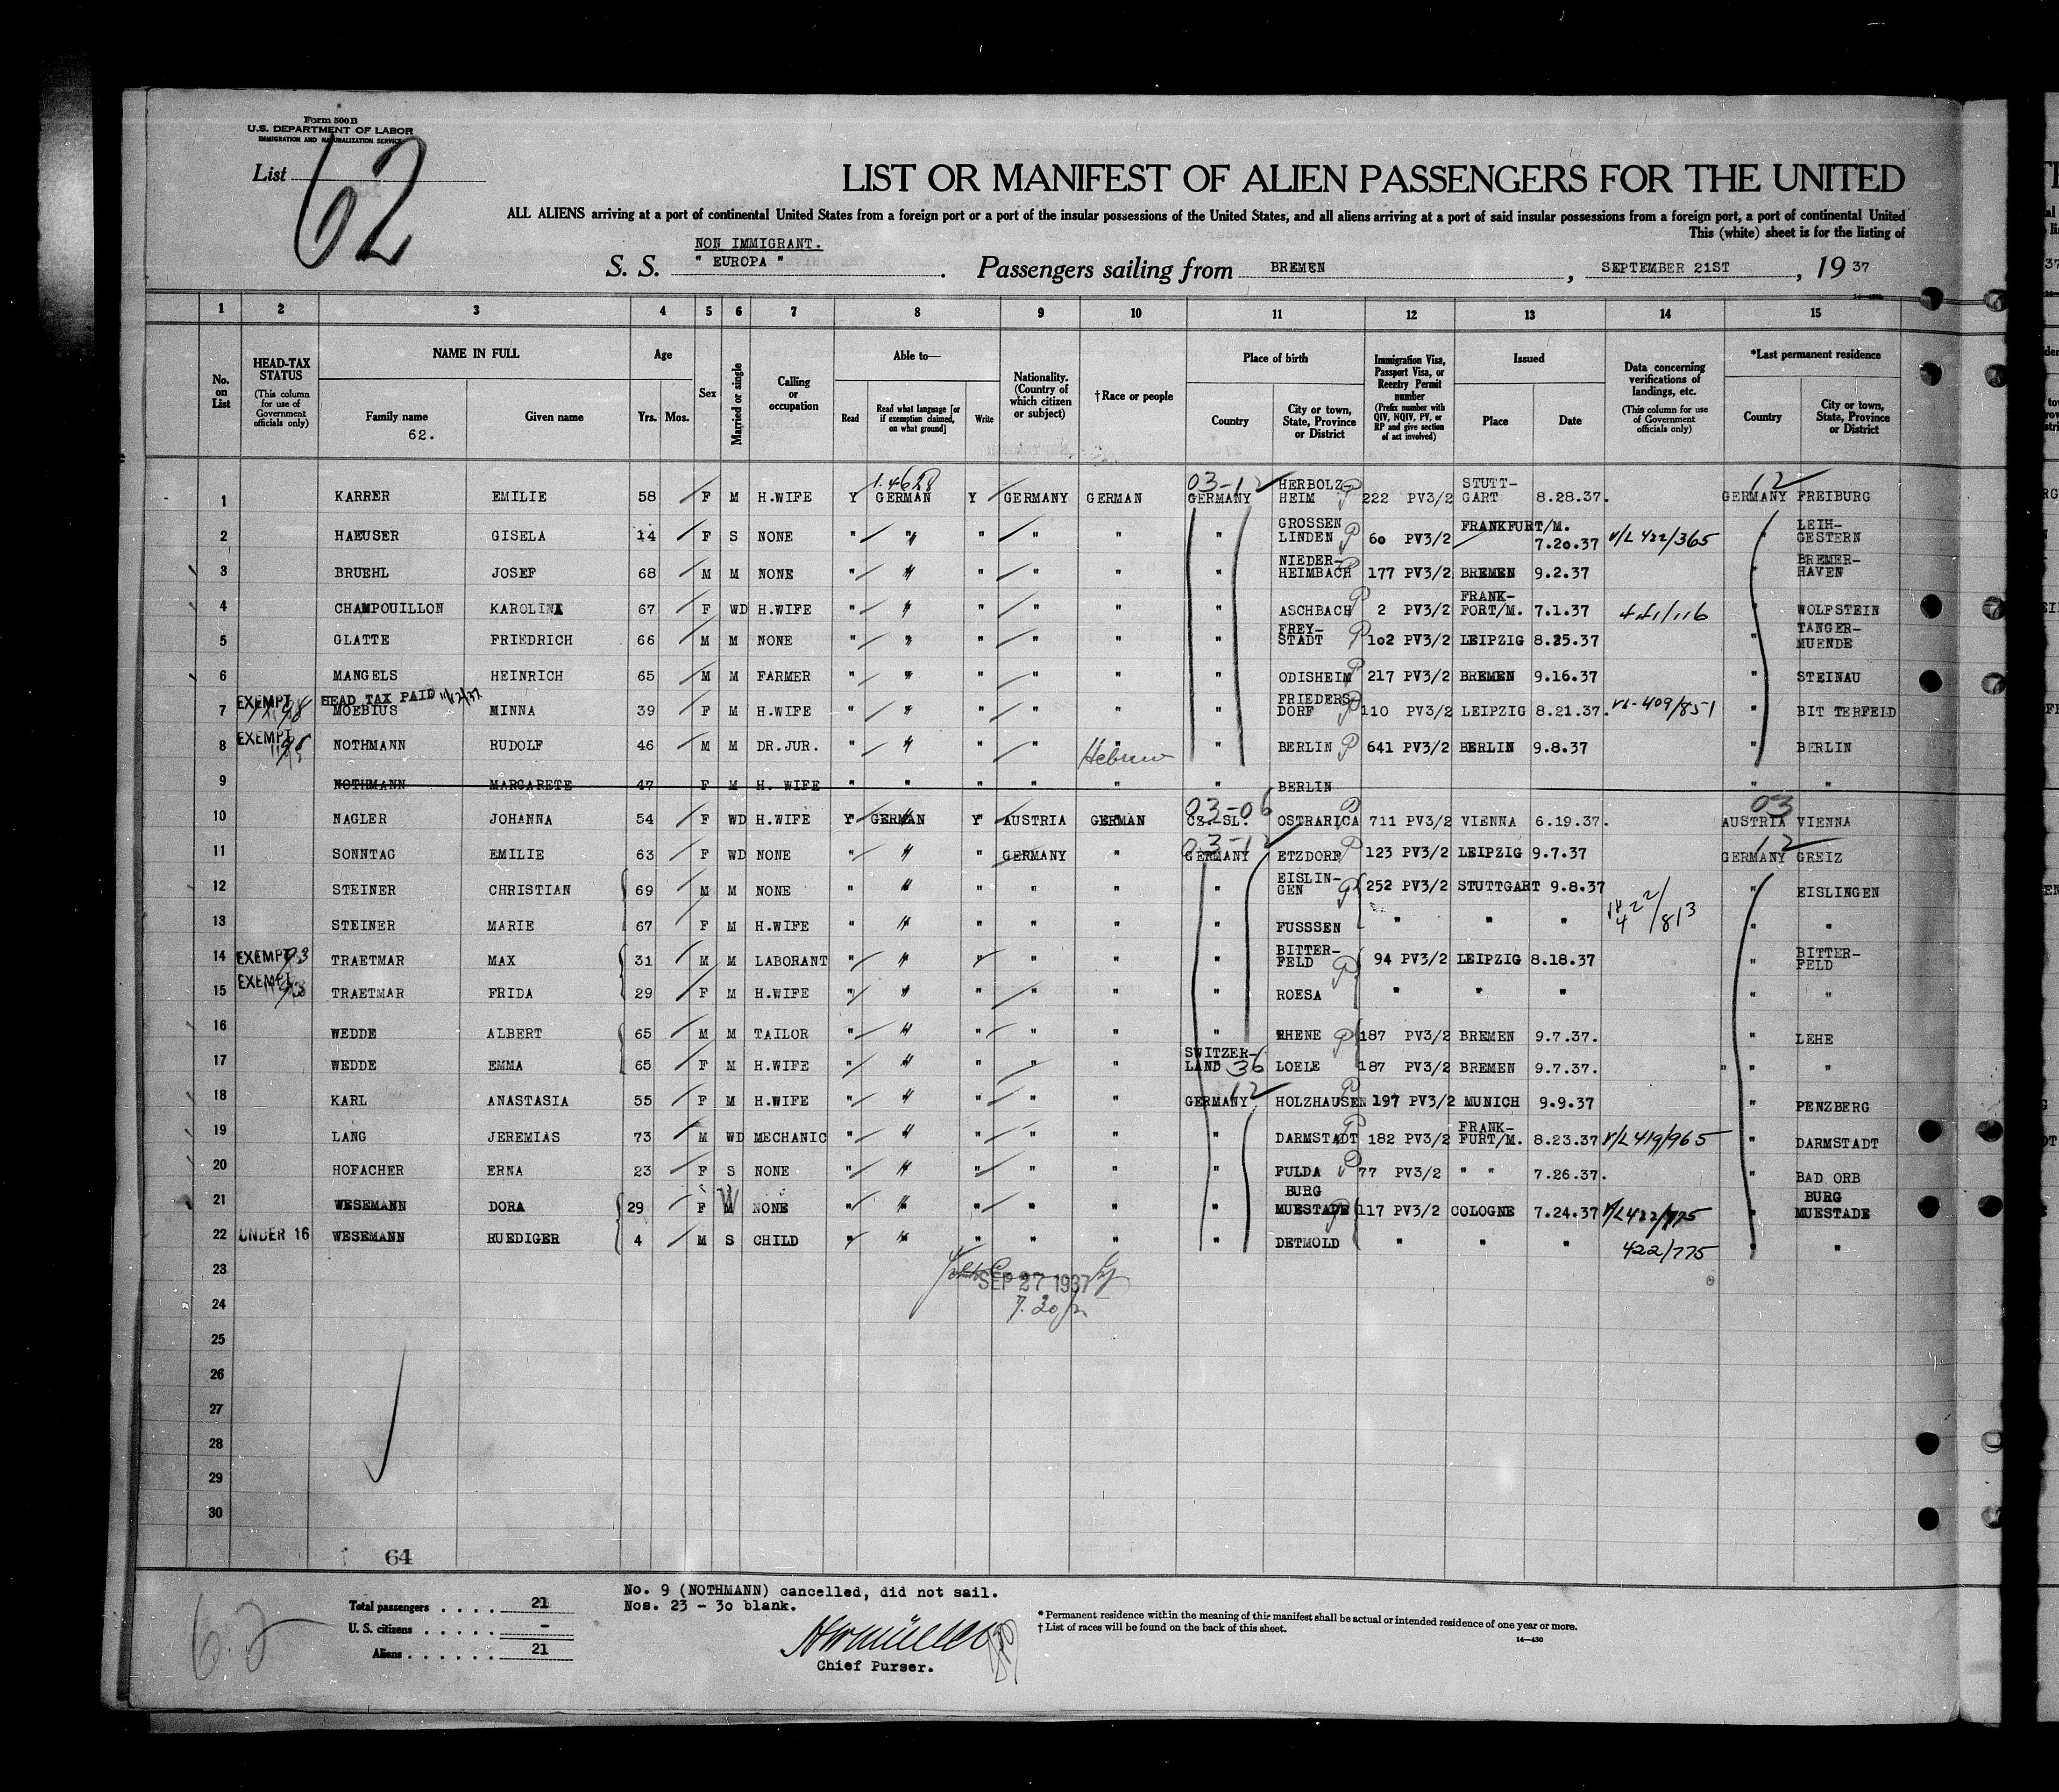 Form 500 B
U.S. DEPARTMENT OF LABOR
IMMIGRATION AND NATURALIZATION SERVICE
List 62
LIST OR MANIFEST OF ALIEN PASSENGERS FOR THE UNITED
ALL ALIENS arriving at a port of continental United States from a foreign port or a port of the insular possessions of the United States, and all aliens arriving at a port of said insular possessions from a foreign port, a port of continental United
This (white) sheet is for the listing of
NON IMMIGRANT.
S. S. " EUROPA " . Passengers sailing from BREMEN , SEPTEMBER 21ST , 19 37
1 2 3 4 5 6 7 8 9 10 11 12 13 14 15
No. on List
HEAD-TAX STATUS (This column for use of Government officials only)
NAME IN FULL
Family name
62.
Given name
Age
Yrs. Mos.
Sex
Married or single
Calling or occupation
Able to—
Read
Read what language [or if exemption claimed, on what ground]
Write
Nationality. (Country of which citizen or subject)
†Race or people
Place of birth
Country
City or town, State, Province or District
Immigration Visa, Passport Visa, or Reentry Permit number (Prefix number with QIV, NQIV, PV, or RP and give section of act involved)
Issued
Place
Date
Data concerning verifications of landings, etc. (This column for use of Government officials only)
*Last permanent residence
Country
City or town, State, Province or District
03-12 12
1 KARRER EMILIE 58 F M H.WIFE Y GERMAN Y GERMANY GERMAN GERMANY HERBOLZ-HEIM 222 PV3/2 STUTT-GART 8.28.37. GERMANY FREIBURG
2 HAEUSER GISELA 14 F S NONE " " " " " " GROSSEN LINDEN 60 PV3/2 FRANKFURT/M. 7.20.37 V/L 422/365 " LEIH-GESTERN
3 BRUEHL JOSEF 68 M M NONE " " " " " " NIEDER-HEIMBACH 177 PV3/2 BREMEN 9.2.37 " BREMER-HAVEN
4 CHAMPOUILLON KAROLINA 67 F WD H.WIFE " " " " " " ASCHBACH 2 PV3/2 FRANK-FORT/M. 7.1.37 441/116 " WOLFSTEIN
5 GLATTE FRIEDRICH 66 M M NONE " " " " " " FREY-STADT 102 PV3/2 LEIPZIG 8.25.37 " TANGER-MUENDE
6 MANGELS HEINRICH 65 M M FARMER " " " " " " ODISHEIM 217 PV3/2 BREMEN 9.16.37 " STEINAU
EXEMPT HEAD TAX PAID
7 MOEBIUS MINNA 39 F M H.WIFE " " " " " " FRIEDERS-DORF 110 PV3/2 LEIPZIG 8.21.37. 409/851 " BIT TERFELD
8 EXEMPT NOTHMANN RUDOLF 46 M M DR.JUR. " " " " " Hebrew " BERLIN 641 PV3/2 BERLIN 9.8.37 " BERLIN
9 NOTHMANN MARGARETE 47 F M H. WIFE " " " " " " BERLIN " "
03-06 03
10 NAGLER JOHANNA 54 F WD H.WIFE Y GERMAN Y AUSTRIA GERMAN CZ.SL. OSTRARICA 711 PV3/2 VIENNA 6.19.37. AUSTRIA VIENNA
03-12 12
11 SONNTAG EMILIE 63 F WD NONE " " " GERMANY " GERMANY ETZDORF 123 PV3/2 LEIPZIG 9.7.37 GERMANY GREIZ
12 STEINER CHRISTIAN 69 M M NONE " " " " " " EISLIN-GEN 252 PV3/2 STUTTGART 9.8.37 " EISLINGEN
13 STEINER MARIE 67 F M H.WIFE " " " " " " FUSSSEN " " " 422/813 " "
14 EXEMPT TRAETMAR MAX 31 M M LABORANT " " " " " " BITTER-FELD 94 PV3/2 LEIPZIG 8.18.37 " BITTER-FELD
15 EXEMPT TRAETMAR FRIDA 29 F M H.WIFE " " " " " " ROESA " " " " "
16 WEDDE ALBERT 65 M M TAILOR " " " " " " RHENE 187 PV3/2 BREMEN 9.7.37. " LEHE
17 WEDDE EMMA 65 F M H.WIFE " " " " " SWITZER-LAND 36 LOELE 187 PV3/2 BREMEN 9.7.37. " " "
18 KARL ANASTASIA 55 F M H.WIFE " " " " " GERMANY 12 HOLZHAUSEN 197 PV3/2 MUNICH 9.9.37 " PENZBERG
19 LANG JEREMIAS 73 M WD MECHANIC " " " " " " DARMSTADT 182 PV3/2 FRANK-FURT/M. 8.23.37 V/L 419/965 " DARMSTADT
20 HOFACHER ERNA 23 F S NONE " " " " " " FULDA 77 PV3/2 " " 7.26.37. " BAD ORB
21 WESEMANN DORA 29 F M W NONE " " " " " " BURG MUESTADE 117 PV3/2 COLOGNE 7.24.37 V/L 422/775 " BURG MUESTADE
22 UNDER 16 WESEMANN RUEDIGER 4 M S CHILD " " " " " " DETMOLD " " " 422/775 " "
23 SEP 27 1937
24 7.30
25
26
27
28
29
30
64
Total passengers . . . . 21
U. S. citizens . . . . . -
Aliens . . . . . . 21
62
No. 9 (NOTHMANN) cancelled, did not sail.
Nos. 23 - 30 blank.
Chief Purser.
* Permanent residence within the meaning of this manifest shall be actual or intended residence of one year or more.
† List of races will be found on the back of this sheet.
14—430